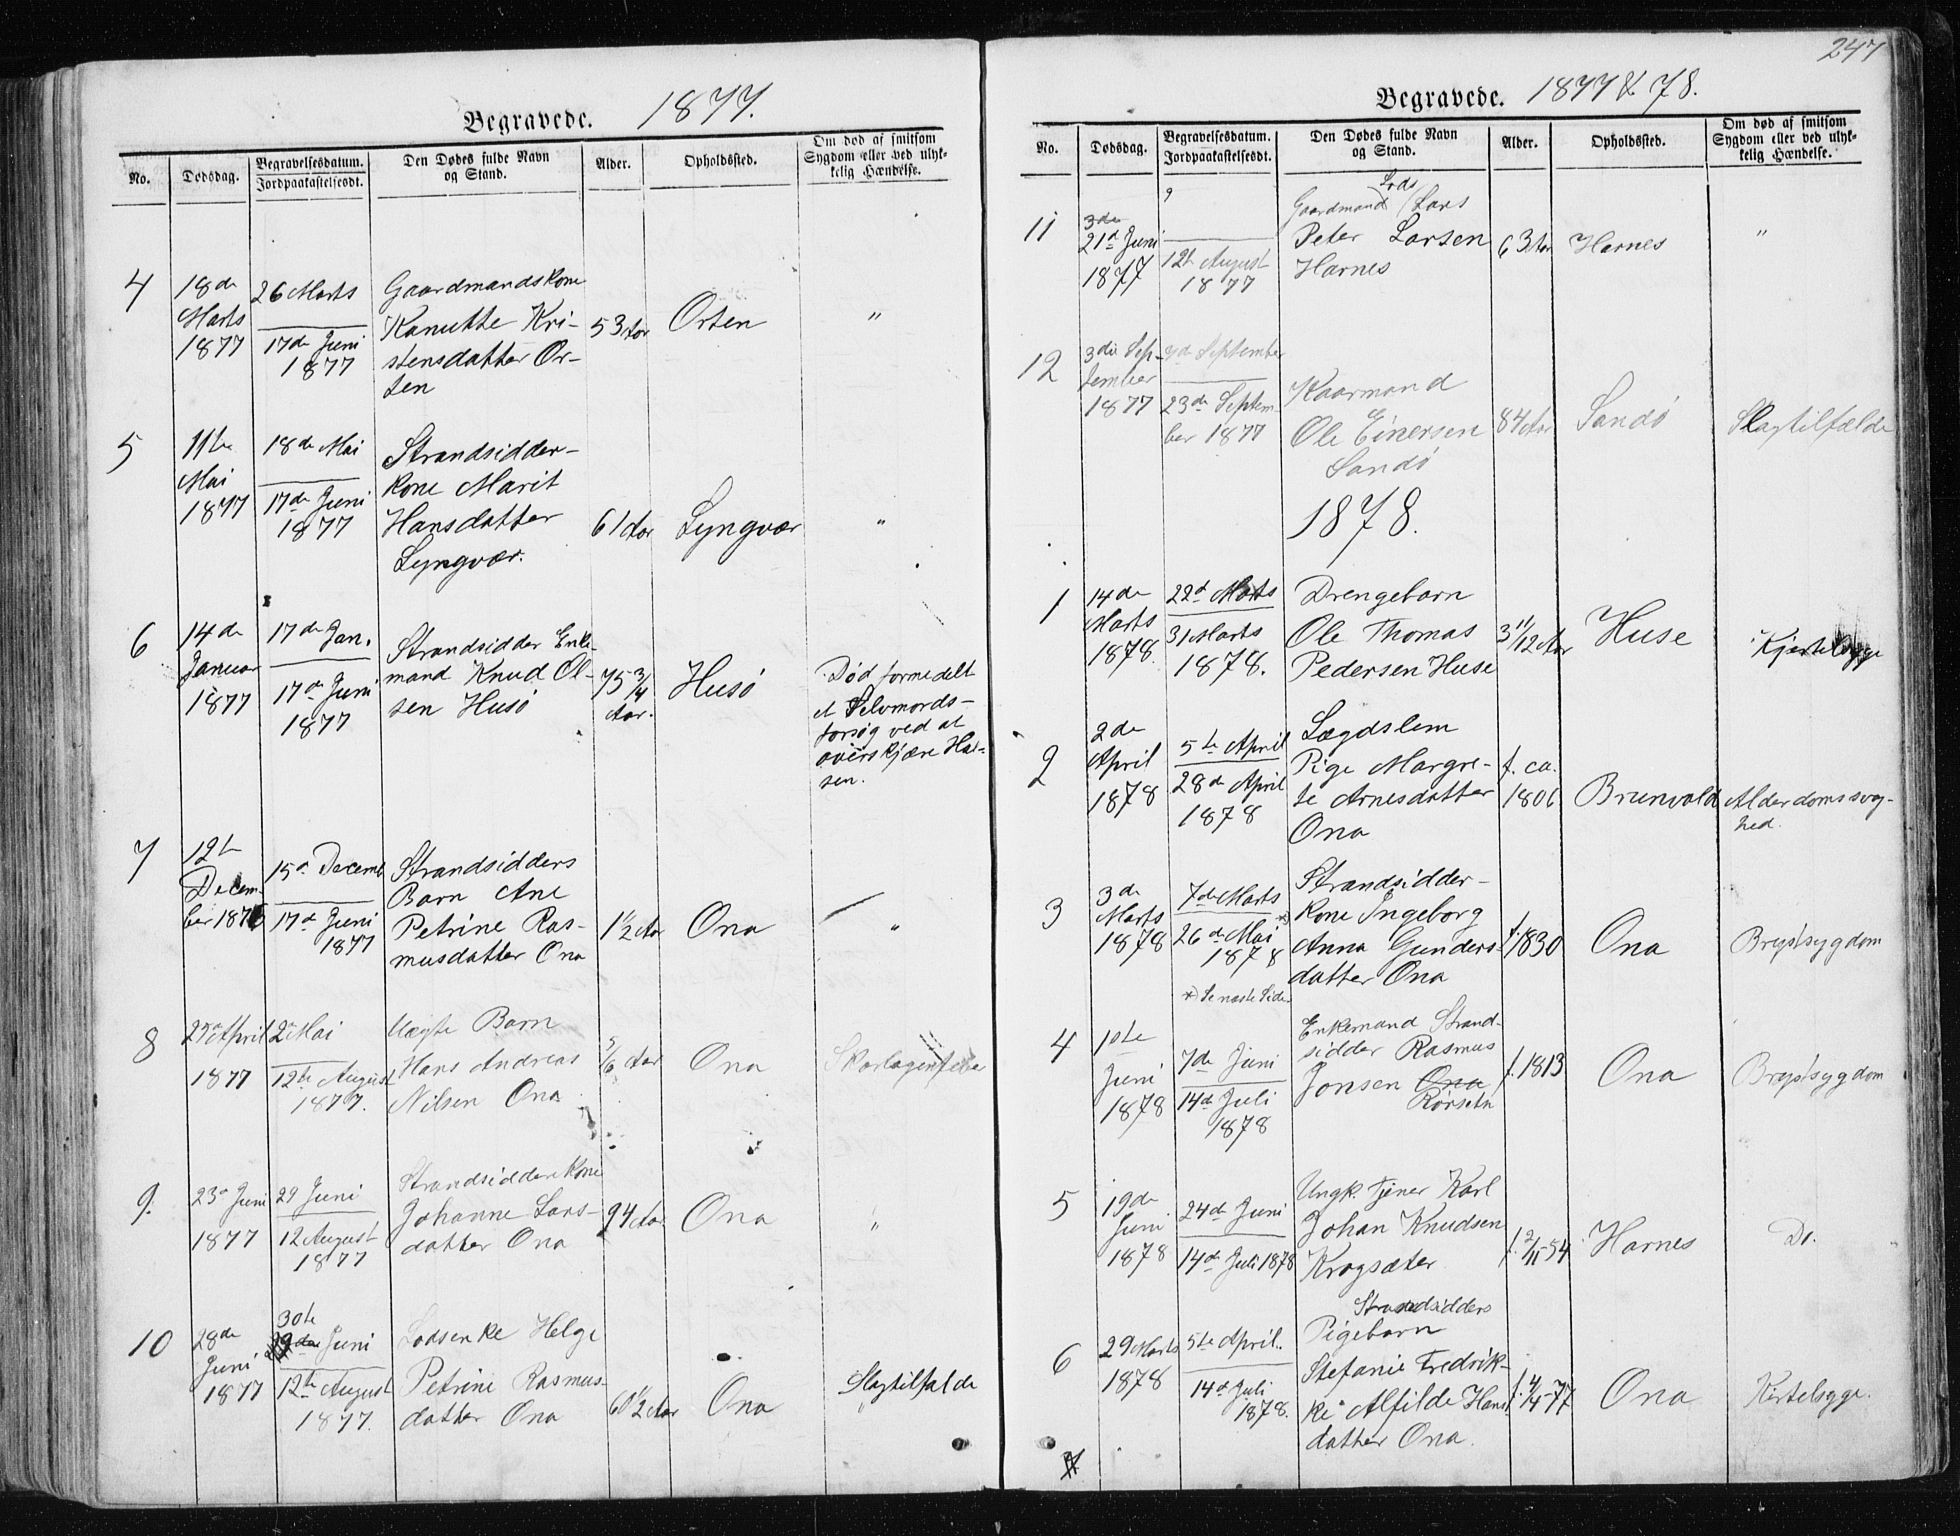 Begravede. 1877.
No. Dødsdag. Begravelsesdatum. Jordpaakastelsesdt. Den Dødes fulde Navn og Stand. Alder. Opholdssted. Om død af smitsom Sygdom eller ved ulykkelig Hændelse.
4
18de
Marts
1877
26 Marts
17de Juni
1877
Gaardmandskone
Kanutte Kri-
stensdatter Or-
ten
53 Aar
Orten
"
5
11te
Mai
1877
18de Mai
17de Juni
1877
Strandsidder-
kone Marit
Hansdatter
Lyngvær.
61 Aar
Lyngvær
"
6
14de
Januar
1877
17de Jan.
17de Juni
1877
Strandsidder Enke-
mand Knud Ol-
sen Husö
75 3/4
Aar.
Husö
Død formedelt
et Selvmords-
forsøg ved at
overskjære Hal-
sen.
7
12te
Decem-
ber 1876
15de Decemb
17de Juni
1877
Strandsidders
Barn Ane
Petrine Ras-
musdatter Ona
1 1/2 Aar
Ona
"
8
April
1877
2 Mai
12te August
1877.
Uægte Barn
Hans Andreas
Nilsen Ona
5/6 Aar
Ona
Skarlagensfeber
9.
23de Juni
1877
29 Juni
12 August
1877
Strandsidderkone
Johanne Lars-
datter Ona
Aar
Ona
"
10
28de
Juni
1877
30te
29de Juni
12te August
1877.
Lodsenke Helge
Petrine Rasmus-
datter Ona
60 1/2 Aar
Ona
Slagtilfælde
"
247
Begravede. 1877 & 78.
No. Dødsdag. Begravelsesdatum. Jordpaakastelsesdt. Den Dødes fulde Navn og Stand. Alder. Opholdssted. Om død af smitsom Sygdom eller ved ulykkelig Hændelse.
11
3de
21de Juni
1877
?
12te August
1877
Lods
Gaardmand / Lars
Peter Larsen
Harnes
63 Aar
Harnes
"
12
3die Sep-
tember
1877
September
23de Septem-
ber 1877
Kaarmand
Ole Einersen
Sandö
84 Aar
Sandö
Slagtilfælde
1878.
1
14de
Marts
1878.
22de Marts
31 Marts
1878.
Drengebarn
Ole Thomas
Pedersen Huse
3 11/12 Aar
Huse
Kjertelsyge
2
2de
April
1878
5te April
28de April
1878
Lægdslem
Pige Margre-
te Arnesdatter
Ona
f. ca.
1806
Brunvold
Alderdomssvag-
hed.
3
3de
Marts
1878
7de Marts
26de Mai *)
1878
*) Se næste Side
Strandsidder-
kone Ingeborg
Anna Gunders-
datter Ona
f. 1830
Ona
Brystsygdom
4
1ste
Juni
1878
7de Juni
14de Juli
1878
Enkemand Strand-
sidder Rasmus
Jonsen Ona
Rörsetn
f. 1813
Ona
Brystsygdom
5
19de
Juni
1878
24de Juni
14de Juli 1878
Ungk. Tjener Karl
Johan Knudsen
Krogsæter
f. 2/11-54
Harnes
Do.
6
29 Marts
1878
5te April.
14de Juli
1878.
Strandsidders
Pigebarn
Stefanie Fredrik-
ke Alfilde Hans-
datter Ona.
f. 4/4-77
Ona
Kirtelsyge.
7